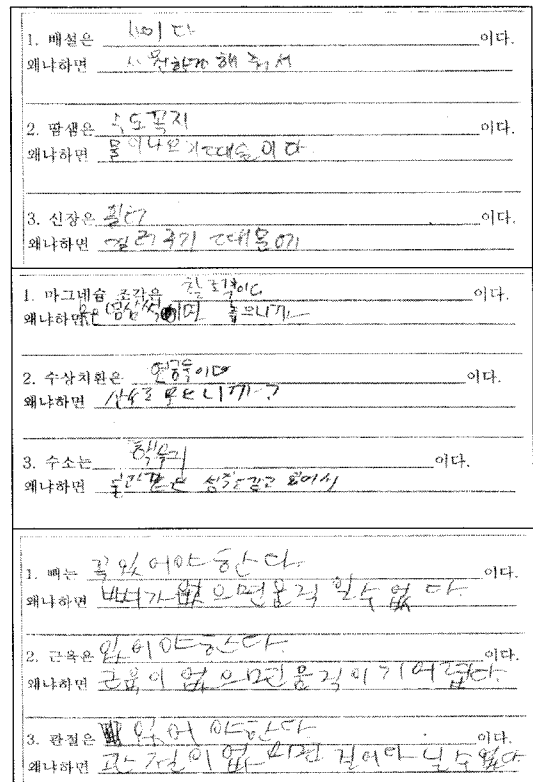 1. 배설은 비이다 이다.
왜냐하면 시원하게 해 줘서
2. 땀샘은 수도꼭지 이다.
왜냐하면 물이나오기때문이다.
3. 신장은 필터 이다.
왜냐하면 걸러주기 때문에
1. 마그네슘 조각은 이다.
왜냐하면
2. 수상치환은 이다.
왜냐하면 산소를 모으니까?
3. 수소는 핵무기 이다.
왜냐하면 성질을 갖고 있어서
1. 뼈는 꼭있어야 한다. 이다.
왜냐하면 뼈가없으면움직일수없다
2. 근육은 있어야한다. 이다.
왜냐하면 근육이 없으면움직이기어렵다.
3. 관절은 있어야한다 이다.
왜냐하면 관절이없으면 걸어다닐수없다